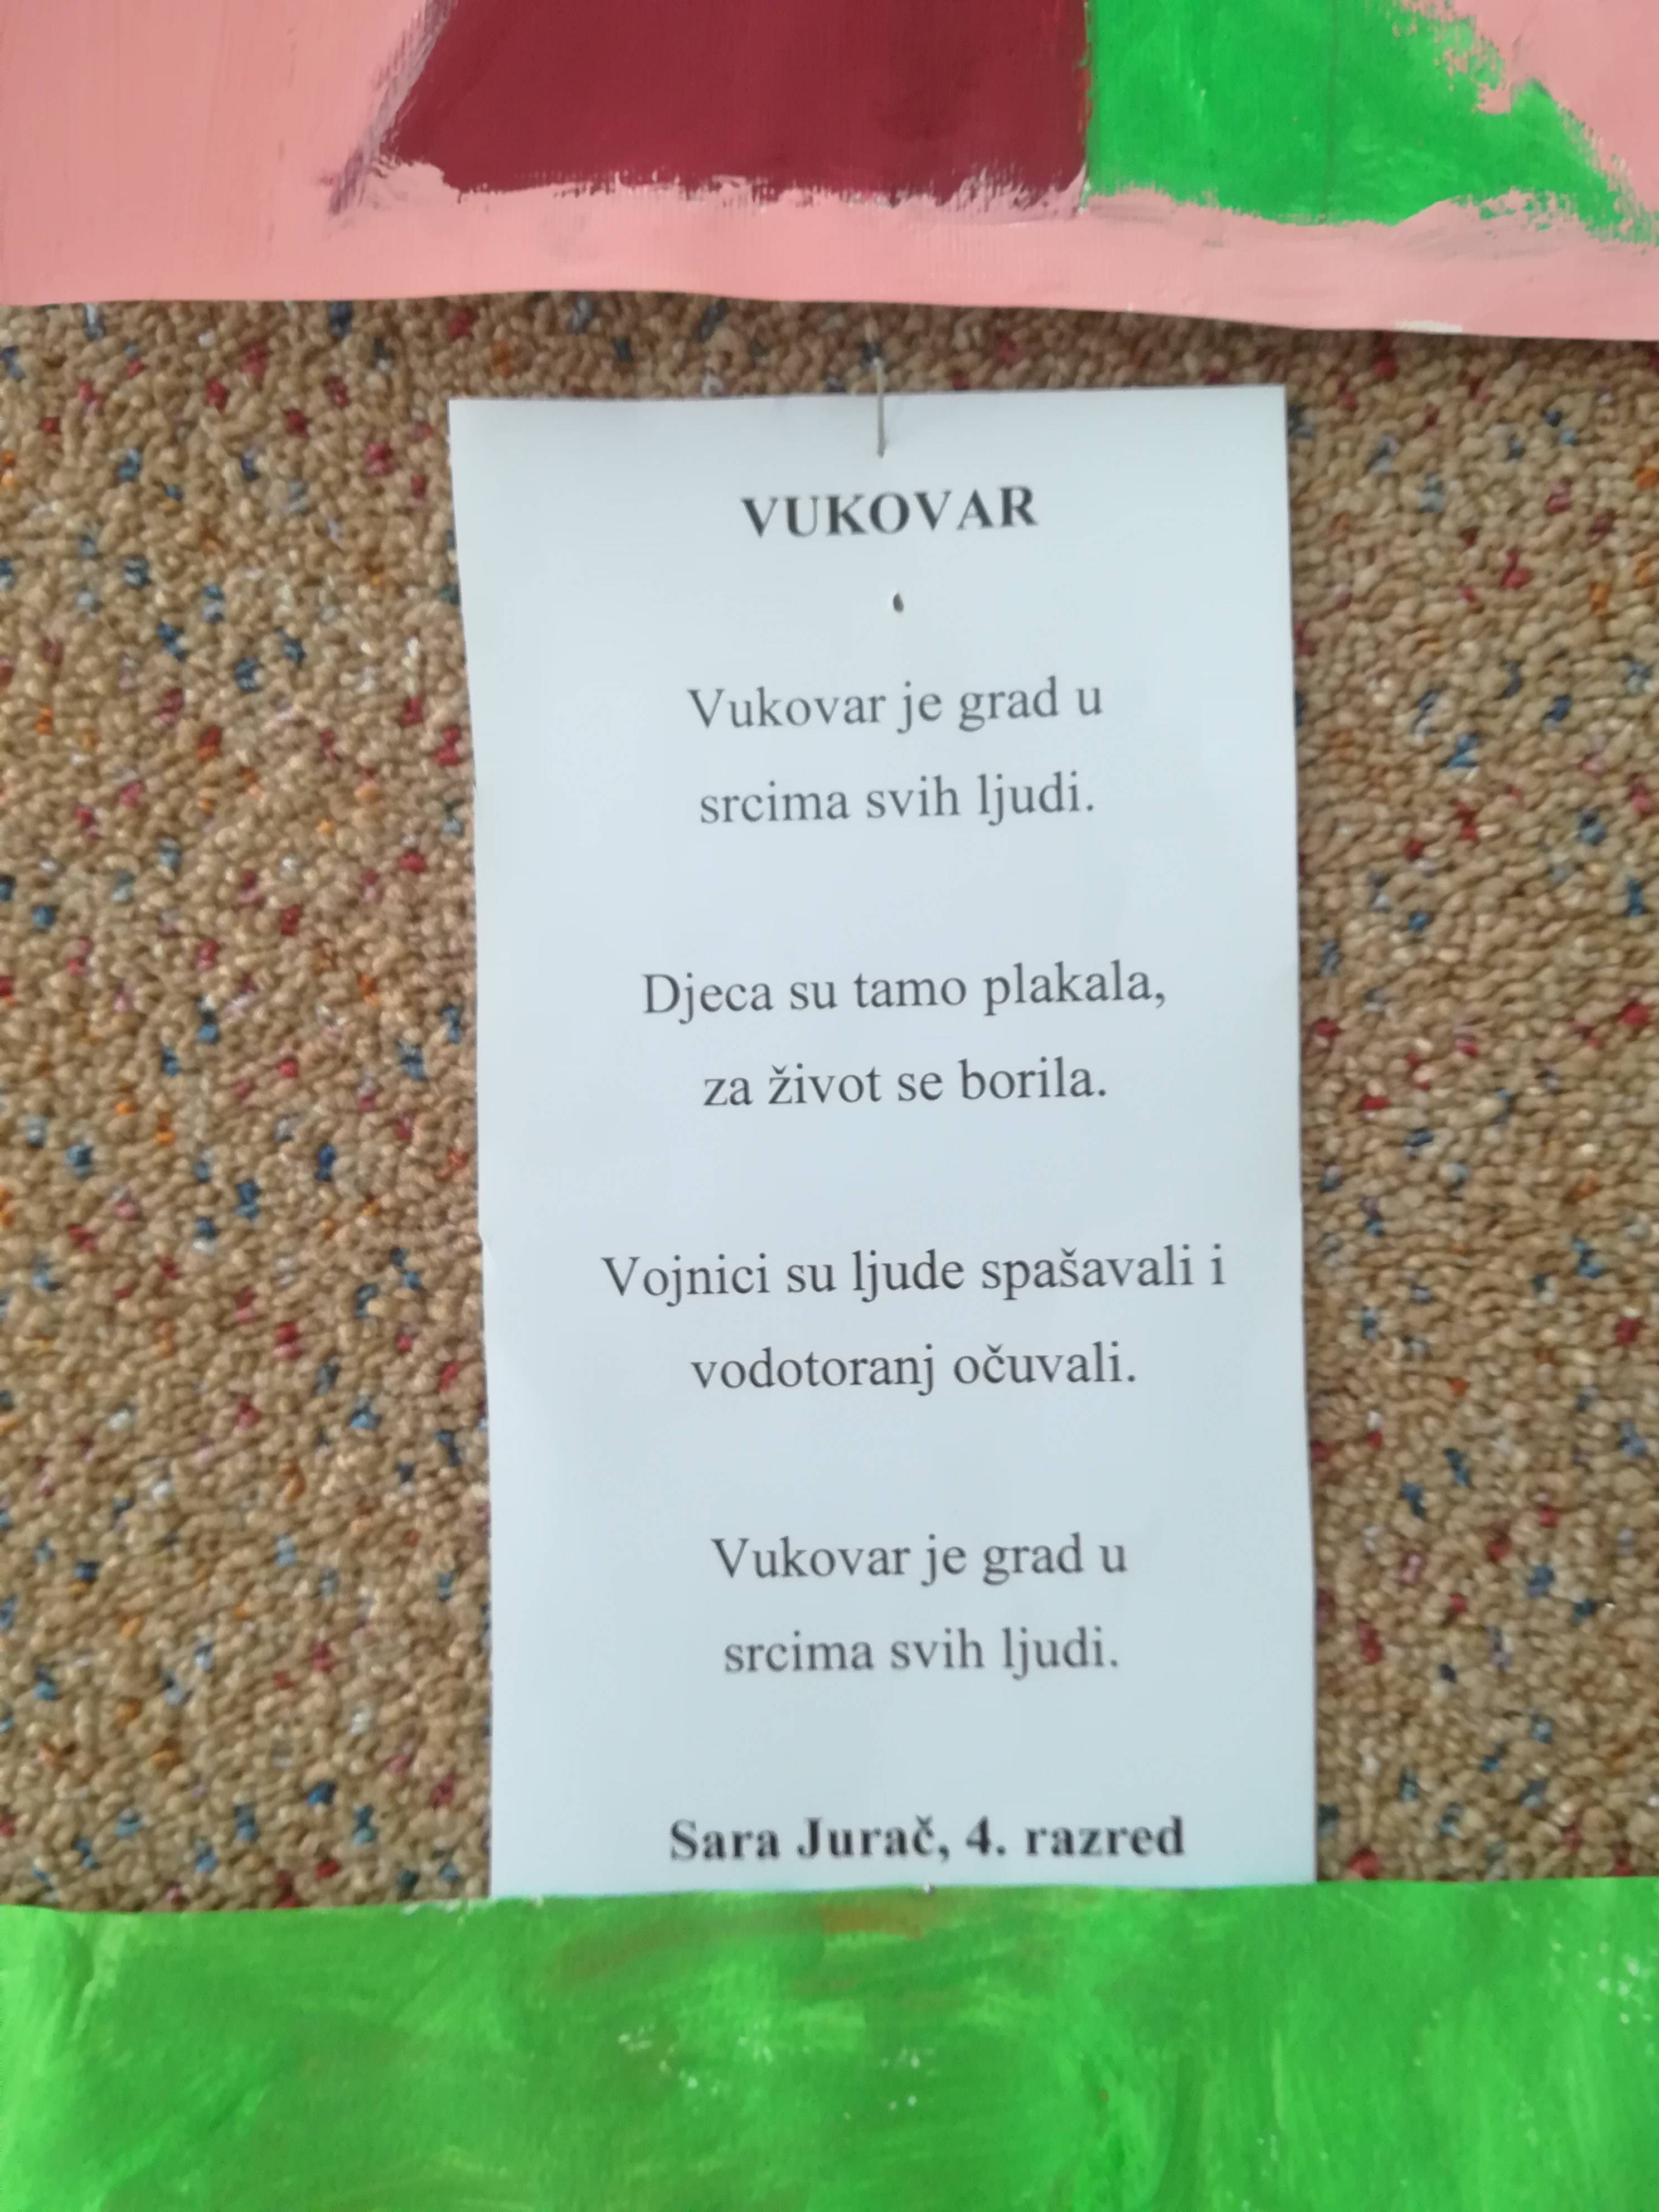 VUKOVAR
Vukovar je grad u
srcima svih ljudi.
Djeca su tamo plakala,
za život se borila.
Vojnici su ljude spašavali i
vodotoranj očuvali.
Vukovar je grad u
srcima svih ljudi.
Sara Jurač, 4. razred